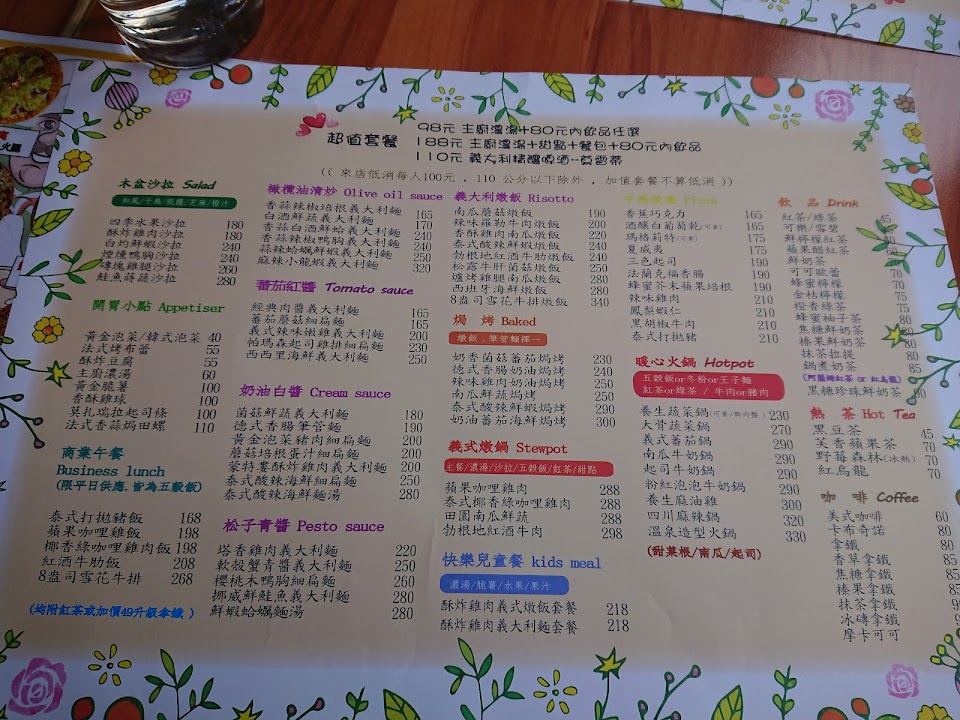 超值套餐
98元 主廚濃湯+80元內飲品任選
188元 主廚濃湯+甜點+餐包+80元內飲品
110元 義大利精釀啤酒--莫雷蒂
(( 來店低消每人100元 , 110 公分以下除外 , 加值套餐不算低消 ))
木盆沙拉 Salad
和風/千島/凱薩/芝麻/橙汁
四季水果沙拉 180
酥炸雞肉沙拉 180
白灼鮮蝦沙拉 240
煙燻鴨胸沙拉 240
磚塊雞腿沙拉 260
鮭魚蒔蔬沙拉 280
開胃小點 Appetiser
黃金泡菜/韓式泡菜 40
法式烤布蕾 55
酥炸豆腐 55
主廚濃湯 60
黃金脆薯 100
香酥雞球 100
莫扎瑞拉起司條 100
法式香蒜焗田螺 110
商業午餐
Business lunch
(限平日供應.皆為五穀飯)
泰式打拋豬飯 168
蘋果咖哩雞飯 198
椰香綠咖哩雞肉飯 198
紅酒牛肋飯 208
8盎司雪花牛排 268
(均附紅茶或加價49升級拿鐵 )
橄欖油清炒 Olive oil sauce
香蒜辣椒培根義大利麵 165
白酒鮮蔬義大利麵 170
香蒜白酒鮮蛤義大利麵 240
香蒜辣椒鴨胸義大利麵 240
蒜辣蛤蠣鮮蝦義大利麵 250
麻辣小龍蝦義大利麵 320
蕃茄紅醬 Tomato sauce
經典肉醬義大利麵 165
蕃茄蘑菇細扁麵 165
義式辣味嫩雞義大利麵 200
帕瑪森起司雞排細扁麵 230
西西里海鮮義大利麵 250
奶油白醬 Cream sauce
菌菇鮮蔬義大利麵 180
德式香腸筆管麵 190
黃金泡菜豬肉細扁麵 200
蘑菇培根蛋汁細扁麵 200
蒙特婁酥炸雞義大利麵 200
泰式酸辣海鮮細扁麵 250
泰式酸辣海鮮麵湯 280
松子青醬 Pesto sauce
塔香雞肉義大利麵 220
軟殼蟹青醬義大利麵 250
櫻桃木鴨胸細扁麵 260
挪威鮮鮭魚義大利麵 280
鮮蝦蛤蠣麵湯 280
義大利燉飯 Risotto
南瓜蘑菇燉飯 190
辣味羅勒牛肉燉飯 200
香酥雞肉南瓜燉飯 220
泰式酸辣鮮蝦燉飯 240
勃根地紅酒牛肋燉飯 240
松露牛肝菌菇燉飯 250
爐烤雞腿南瓜燉飯 280
西班牙海鮮燉飯 280
8盎司雪花牛排燉飯 340
焗 烤 Baked
燉飯 . 筆管麵擇一
奶香菌菇蕃茄焗烤 230
德式香腸奶油焗烤 240
辣味雞肉奶油焗烤 250
南瓜鮮蔬焗烤 250
泰式酸辣鮮蝦焗烤 290
奶油蕃茄海鮮焗烤 290
義式燉鍋 Stewpot
主餐/濃湯/沙拉/五穀飯/紅茶/甜點
蘋果咖哩雞肉 288
泰式椰香綠咖哩雞肉 288
田園南瓜鮮蔬 288
勃根地紅酒牛肉 298
快樂兒童餐 kids meal
濃湯/脆薯/水果/果汁
酥炸雞肉義式燉飯套餐 218
酥炸雞肉義大利麵套餐 218
Pizza
香蕉巧克力 165
酒釀白葡萄乾(可素) 165
瑪格莉特(可素) 175
夏威夷 175
三色起司 190
法蘭克福香腸 190
蜂蜜芥末蘋果培根 190
辣味雞肉 210
鳳梨蝦仁 210
黑胡椒牛肉 210
泰式打拋豬 210
暖心火鍋 Hotpot
五穀飯or冬粉or王子麵
紅茶or綠茶 / 牛肉or豬肉
養生蔬菜鍋 230
大骨蔬菜鍋 270
義式蕃茄鍋 290
南瓜牛奶鍋 290
起司牛奶鍋 290
粉紅泡泡牛奶鍋 290
養生麻油雞 300
四川麻辣鍋 320
溫泉造型火鍋 330
(甜菜根/南瓜/起司)
飲 品 Drink
紅茶/綠茶 45
可樂/雪碧
鮮檸檬紅茶
蘋果醋紅茶
鮮奶茶
可可歐蕾
蜂蜜檸檬 70
金桔檸檬 75
橙香綠茶 75
蜂蜜柚子茶 80
焦糖鮮奶茶 80
榛果鮮奶茶 80
抹茶拉提 80
鍋煮奶茶 85
(阿薩姆紅茶 or 紅烏龍)
黑糖珍珠鮮奶茶 80
熱 茶 Hot Tea
黑豆茶 45
芙香蘋果茶 70
野莓森林(冰熱) 70
紅烏龍 70
咖 啡 Coffee
美式咖啡 60
卡布奇諾 80
拿鐵 80
香草拿鐵 85
焦糖拿鐵 85
榛果拿鐵 85
抹茶拿鐵
冰磚拿鐵
摩卡可可